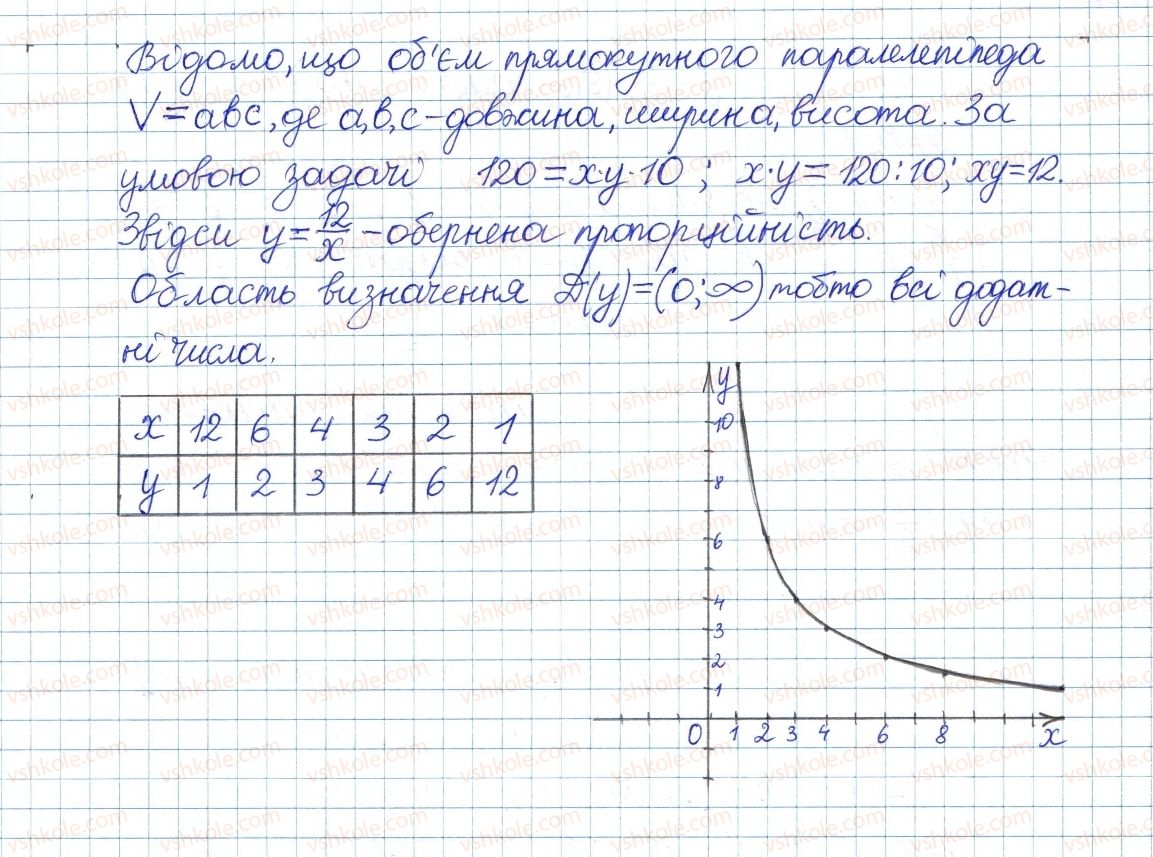 Відомо, що об'єм прямокутного паралелепіпеда
V=авс, де а,в,с-довжина, ширина, висота. За
умовою задачі 120=х·у·10; х·у=120:10; ху=12.
Звідси у=12/х -обернена пропорційність.
Область визначення D(y)=(0;∞) тобто всі додат-
ні числа.
х 12 6 4 3 2 1
у 1 2 3 4 6 12
у
10
8
6
4
3
2
1
0 1 2 3 4 6 8 х
vshkole.com